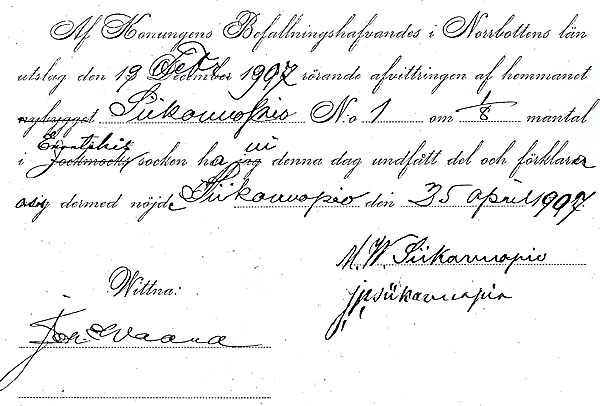 Af Konungens Befallningshafvandes i Norrbottens län
utslag den 19 Febr December 1907 rörande afvittringen af hemmanet
nybygget Siikavuopio No 1 om 1/8 mantal
i Enontekis Jockmocks socken ha vi jag denna dag undfått del och förklara
oss dermed nöjde Siikavuopio den 25 april 1907
M. W. Siikavuopio
Wittna:
siikavuopio
Joh.